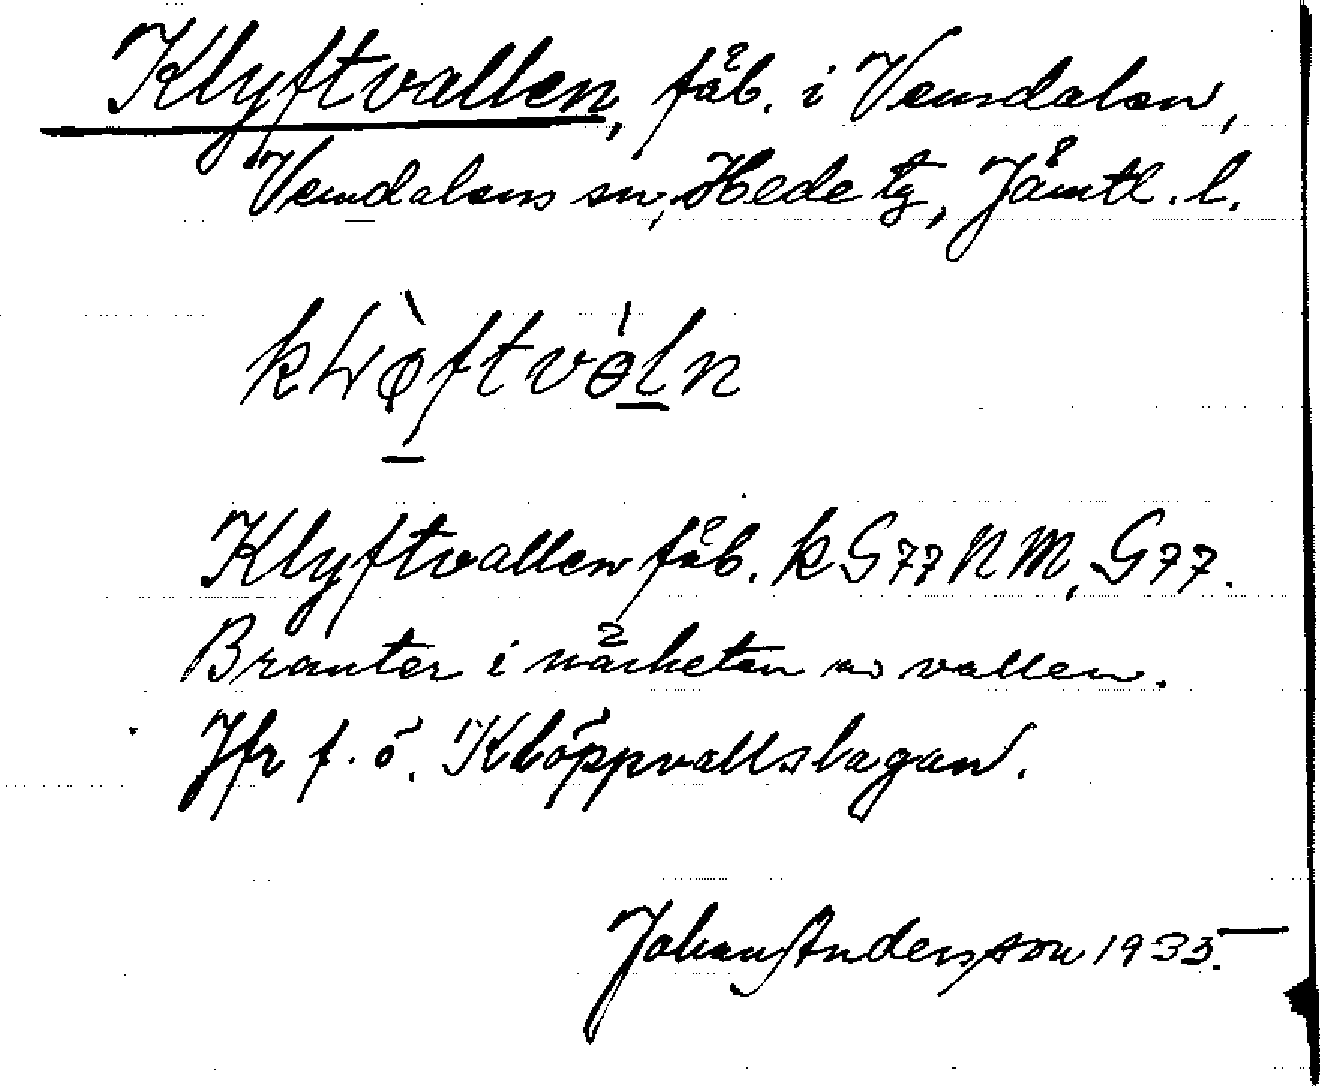 Klyftvallen, fäb. i Vemdalen,
Vemdalens sn, Hede tg, Jämtl. l.
Klyftvallen fäb. k G77 N M, G77.
Branter i närheten av vallen.
Jfr f. ö. Klöppvallslagan.
Johan Andersson 1935.